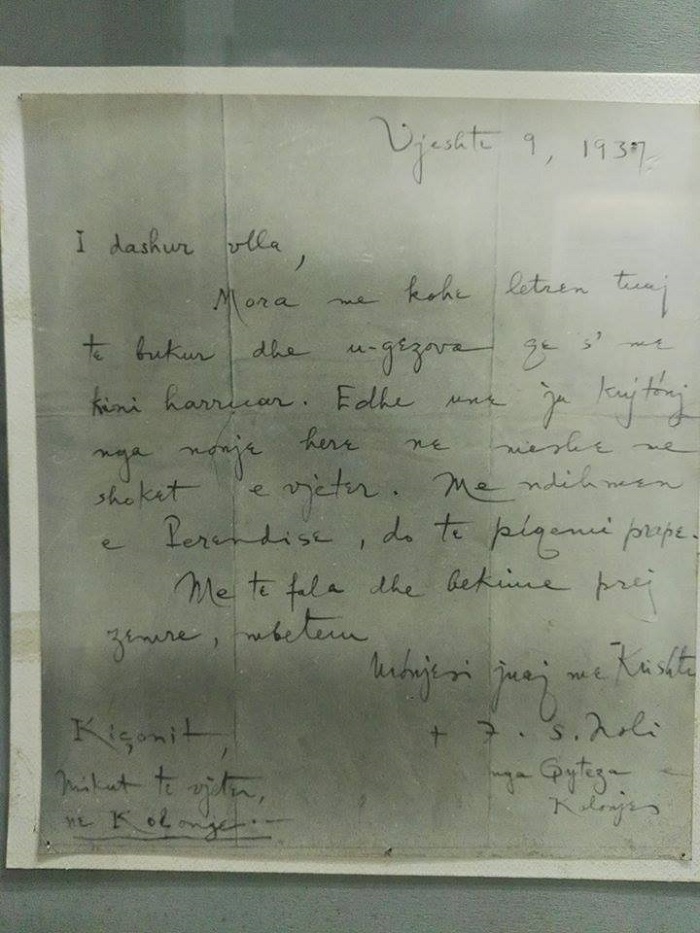 Vjeshte 9, 1937
I dashur vlla,
Mora me kohe letren tuaj
te bukur dhe u-gezova qe s' me
kini harruar. Edhe une ju kujtónj
nga nonje here ne meshe me
shoket e vjeter. Me ndihmen
e Perendise, do te piqemi prape.
Me te fala dhe bekime prej
zemre, mbetem
Urónjesi juaj me Krisht
Kiçonit,
+ F. S. Noli
Mikut te vjeter,
nga Qyteza e
Kolonjes
ne Kolonje.—